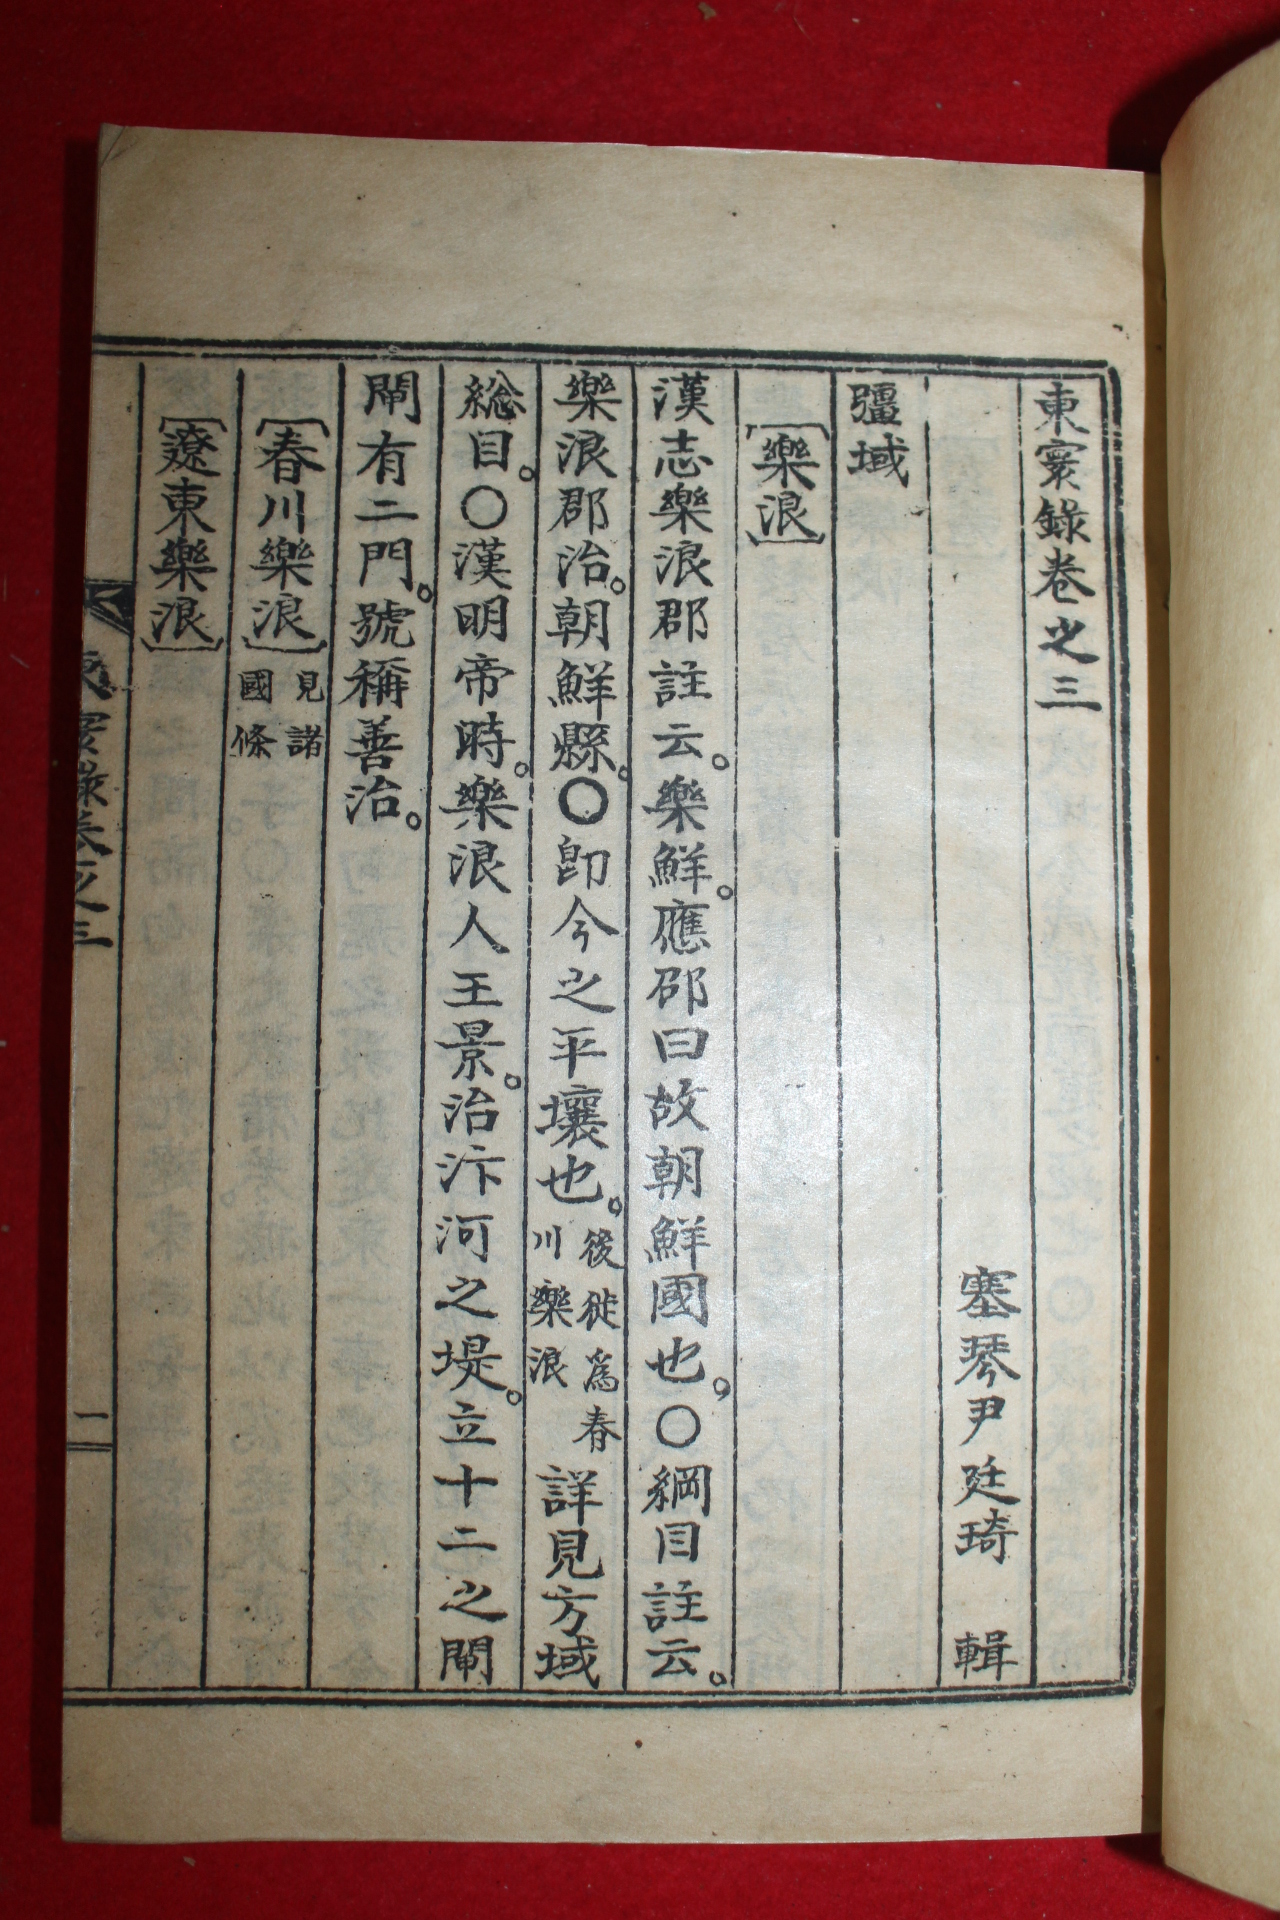 東寰錄卷之三
塞琴尹廷琦 輯
疆域
〔樂浪〕
漢志樂浪郡註云。樂鮮。應邵曰故朝鮮國也。〇綱目註云。
樂浪郡治。朝鮮縣。〇卽今之平壤也。後徙爲春川樂浪詳見方域
総目。〇漢明帝時。樂浪人王景。治汴河之堤。立十二之閘
閘有二門。號稱善治。
〔春川樂浪〕見諸國條
〔遼東樂浪〕
東寰錄卷之三
一